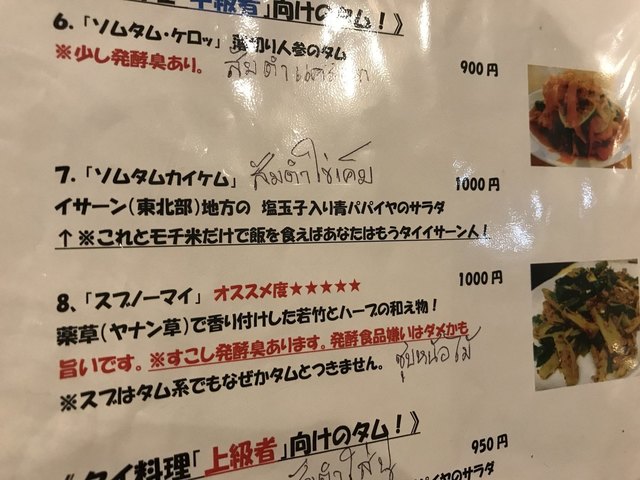 「中級者」向けのタム！》
6、「ソムタム・ケロッ」 千切り人参のタム
※少し発酵臭あり。 ส้มตำแครอท 900円
7、「ソムタムカイケム」 ส้มตำไข่เค็ม 1000円
イサーン（東北部）地方の 塩玉子入り青パパイヤのサラダ
↑※これとモチ米だけで飯を食えばあなたはもうタイイサーン人！
8、「スプノーマイ」 オススメ度★★★★★ 1000円
薬草（ヤナン草）で香り付けした若竹とハーブの和え物！
旨いです。※すこし発酵臭あります。発酵食品嫌いはダメかも
※スプはタム系でもなぜかタムとつきません。 ซุปหน่อไม้
《タイ料理「上級者」向けのタム！》
950円
ส้มตำใส่ปู
パパイヤのサラダ